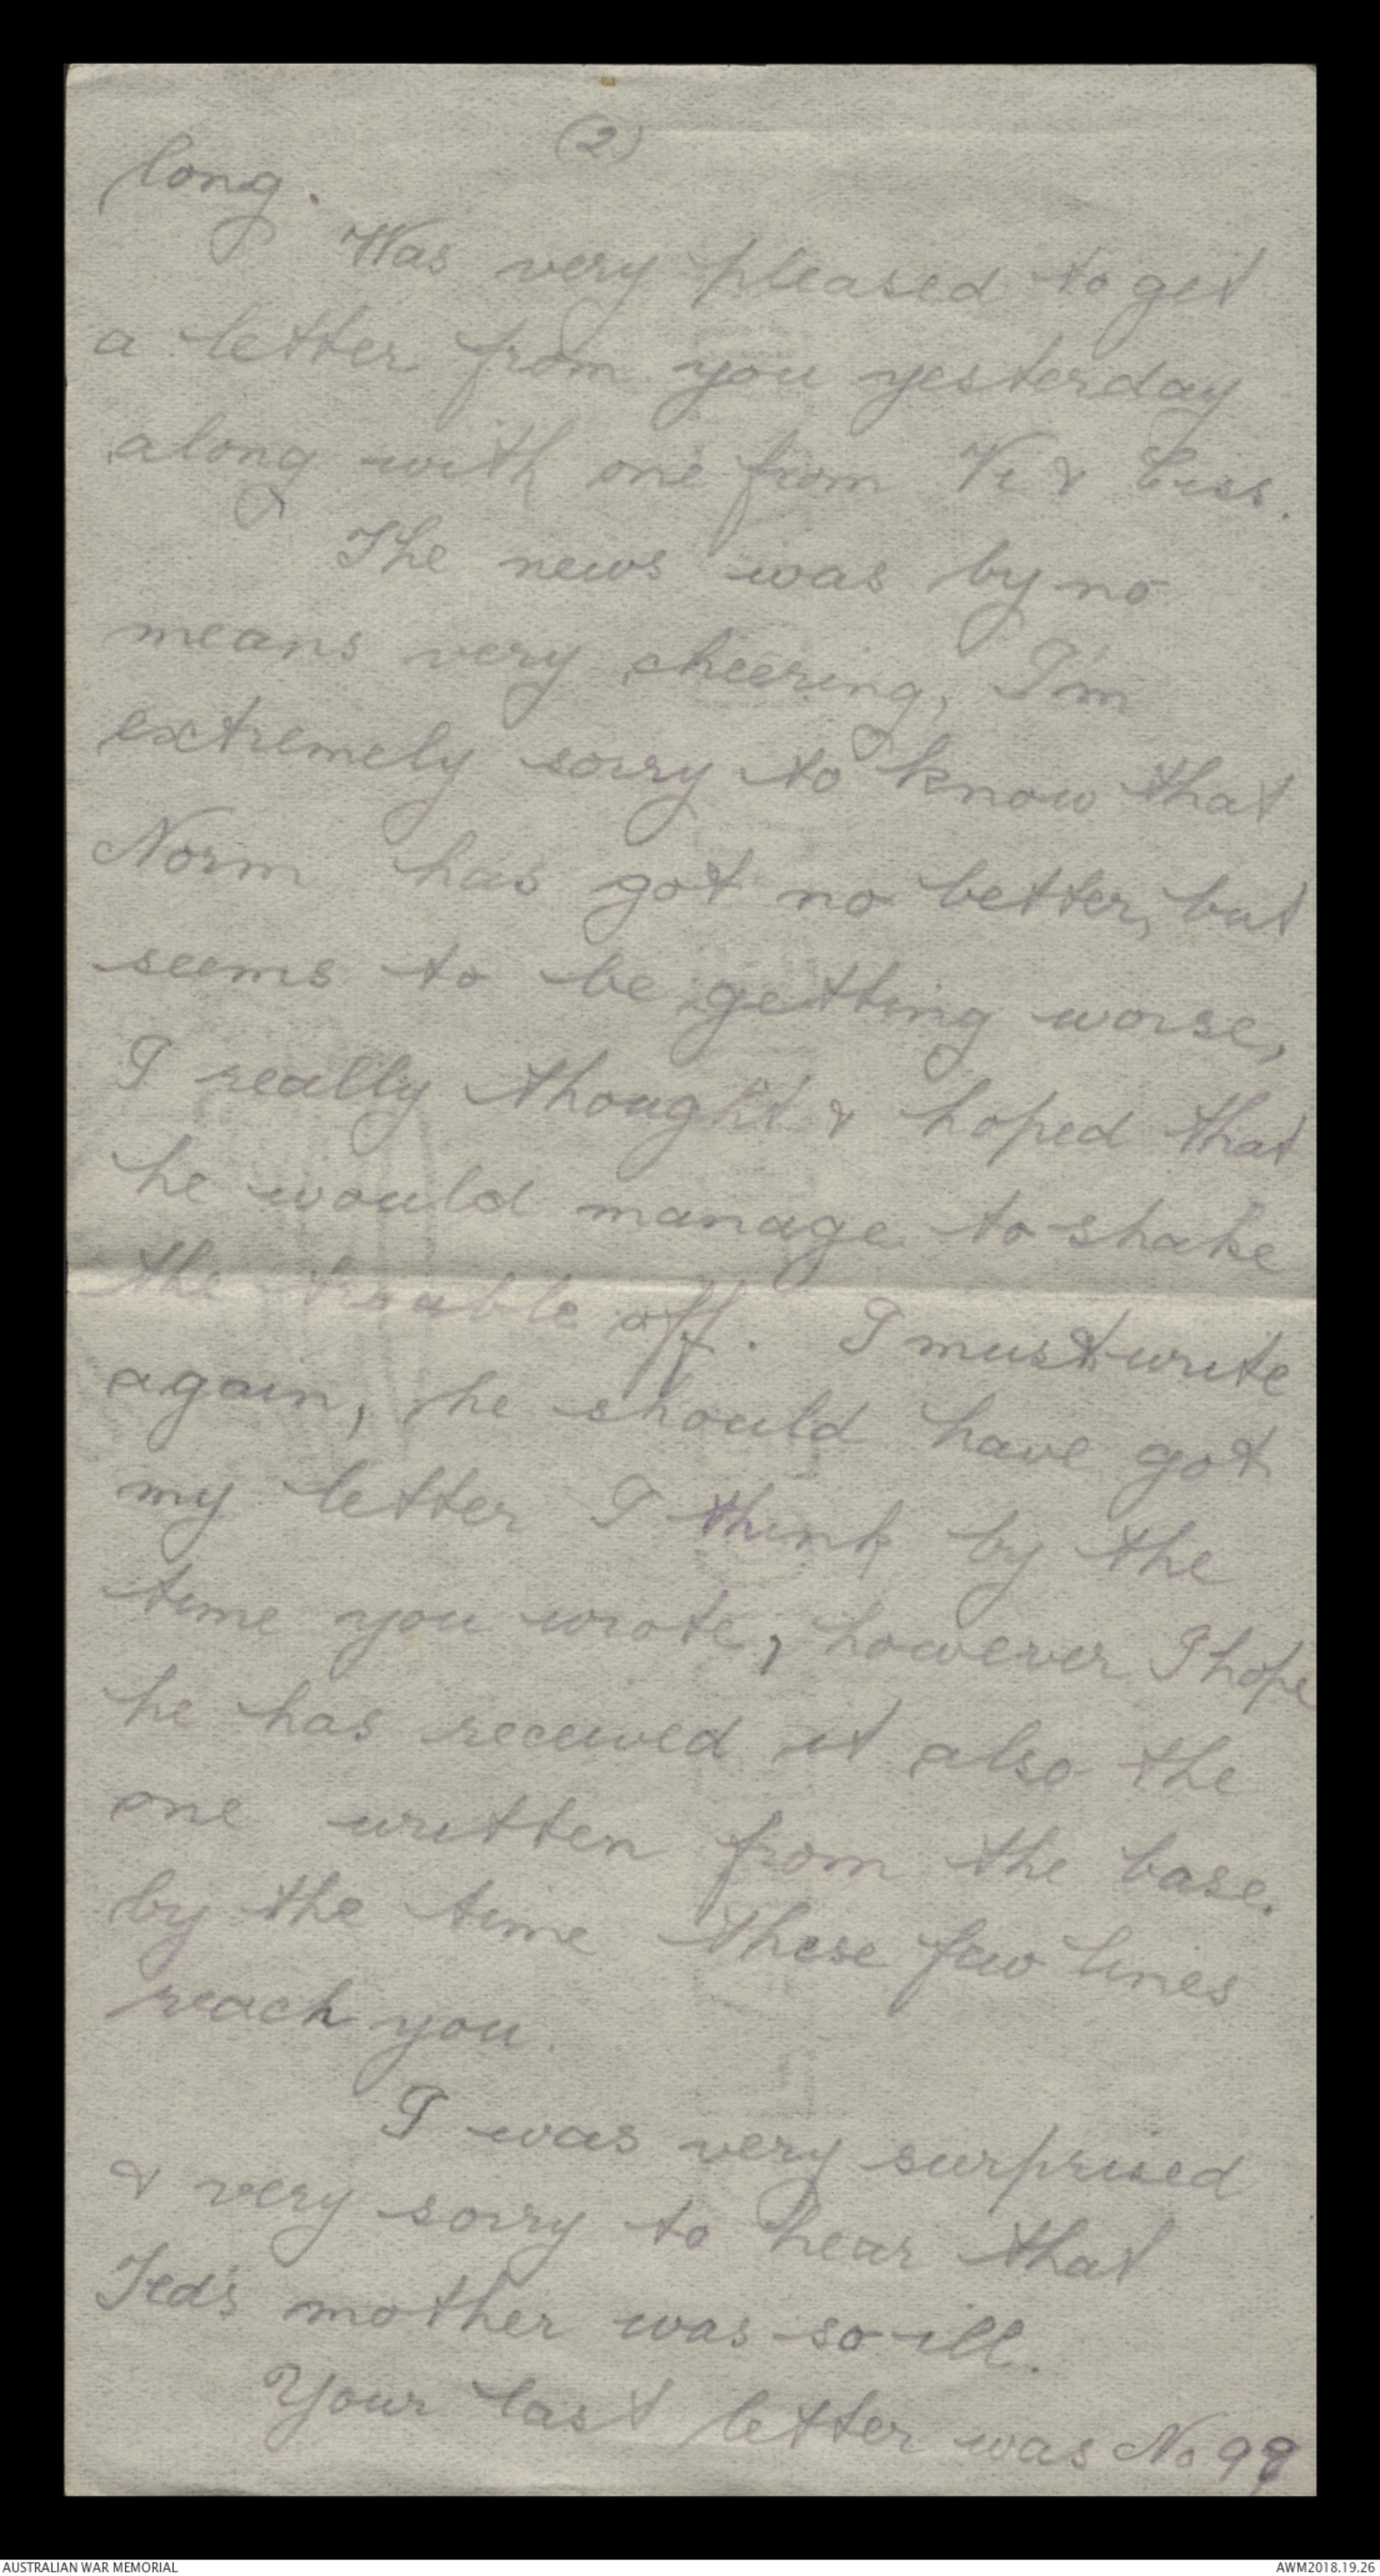 (2)
long.
Was very pleased to get
a letter from you yesterday
along with one from Vi & Ciss.
The news was by no
means very cheering, I'm
extremely sorry to know that
Norm has got no better, but
seems to be getting worse,
I really thought & hoped that
he would manage to shake
the trouble off. I must write
again, he should have got
my letter I think by the
time you wrote, however I hope
he has received it also the
one written from the base.
by the time these few lines
reach you.
I was very surprised
& very sorry to hear that
Ted's mother was so ill.
Your last letter was No 99
AUSTRALIAN WAR MEMORIAL
AWM2018.19.26